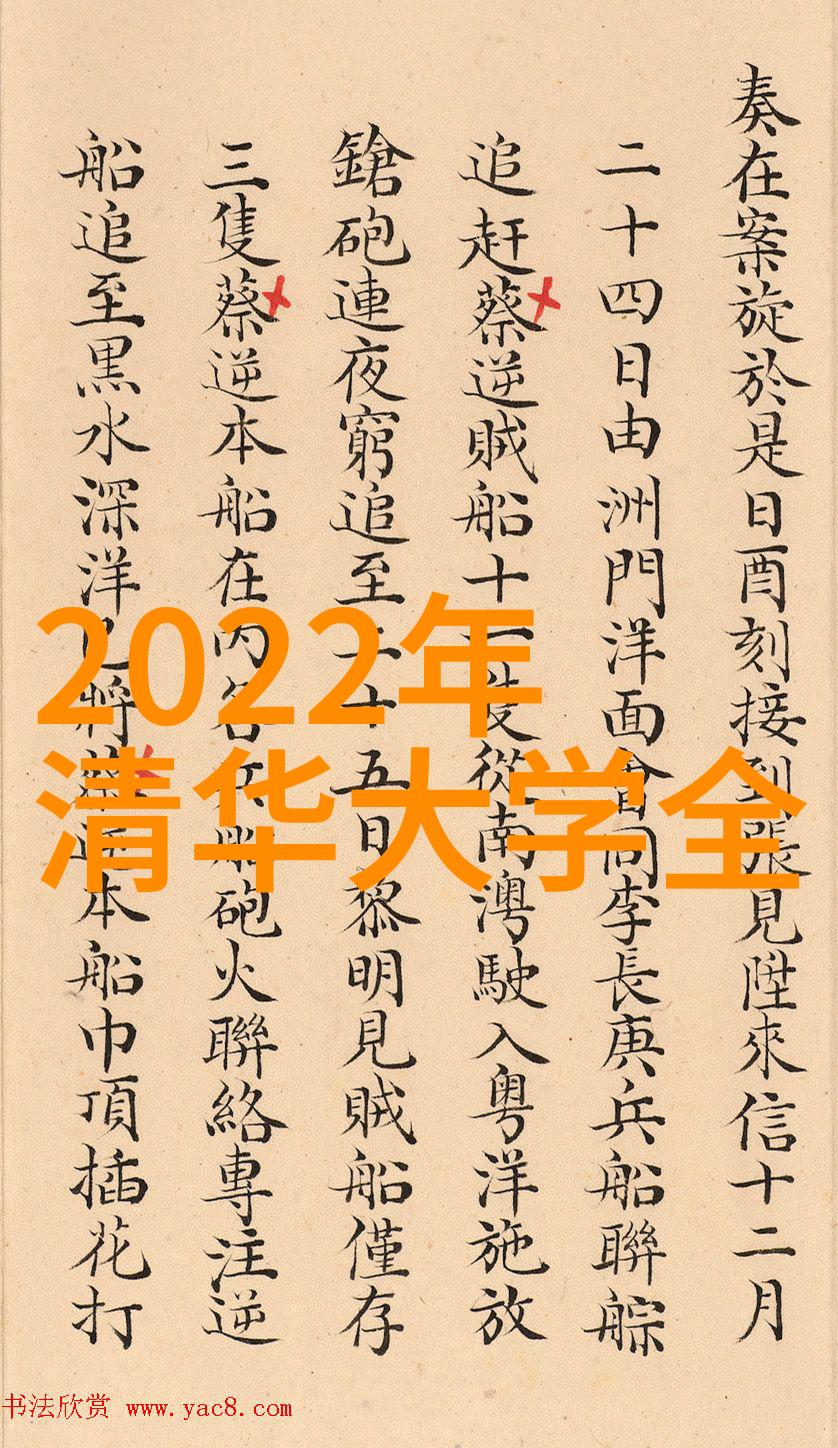 奏在案旋於是日酉刻接到張見陞來信十二月
二十四日由洲門洋面會同李長庚兵船聯䑸
追赶蔡逆賊船十一隻從南澳駛入粤洋施放
鎗砲連夜窮追至二十五日黎明見賊船僅存
三隻蔡逆本船在内各兵船砲火聯絡專注逆
船追至黒水深洋已將蔡逆本船巾頂插花打
2022年
清华大学全
书法欣赏 www.yac8.com